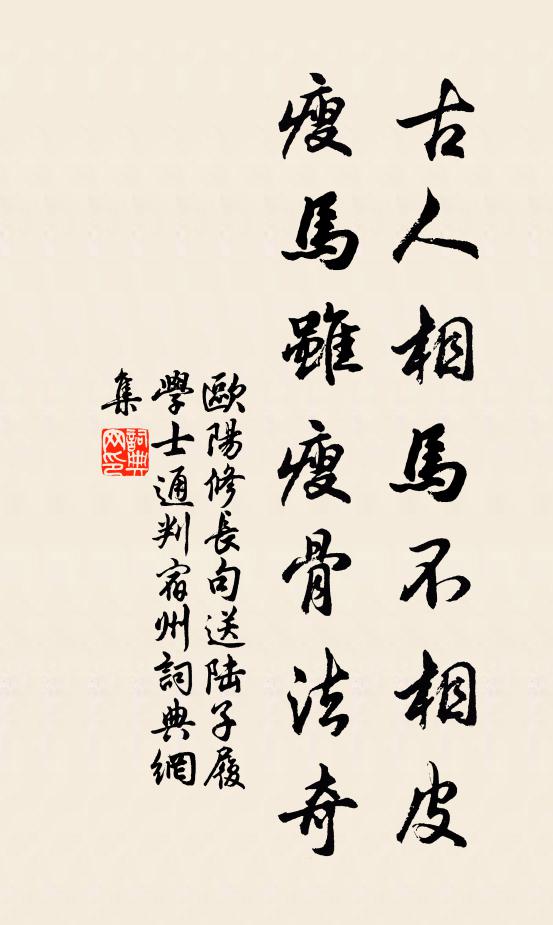 古人相馬不相皮
瘦馬雖瘦骨法奇
歐陽修長句送陸子履
學士通判宿州詞典網
集
詞典
网印